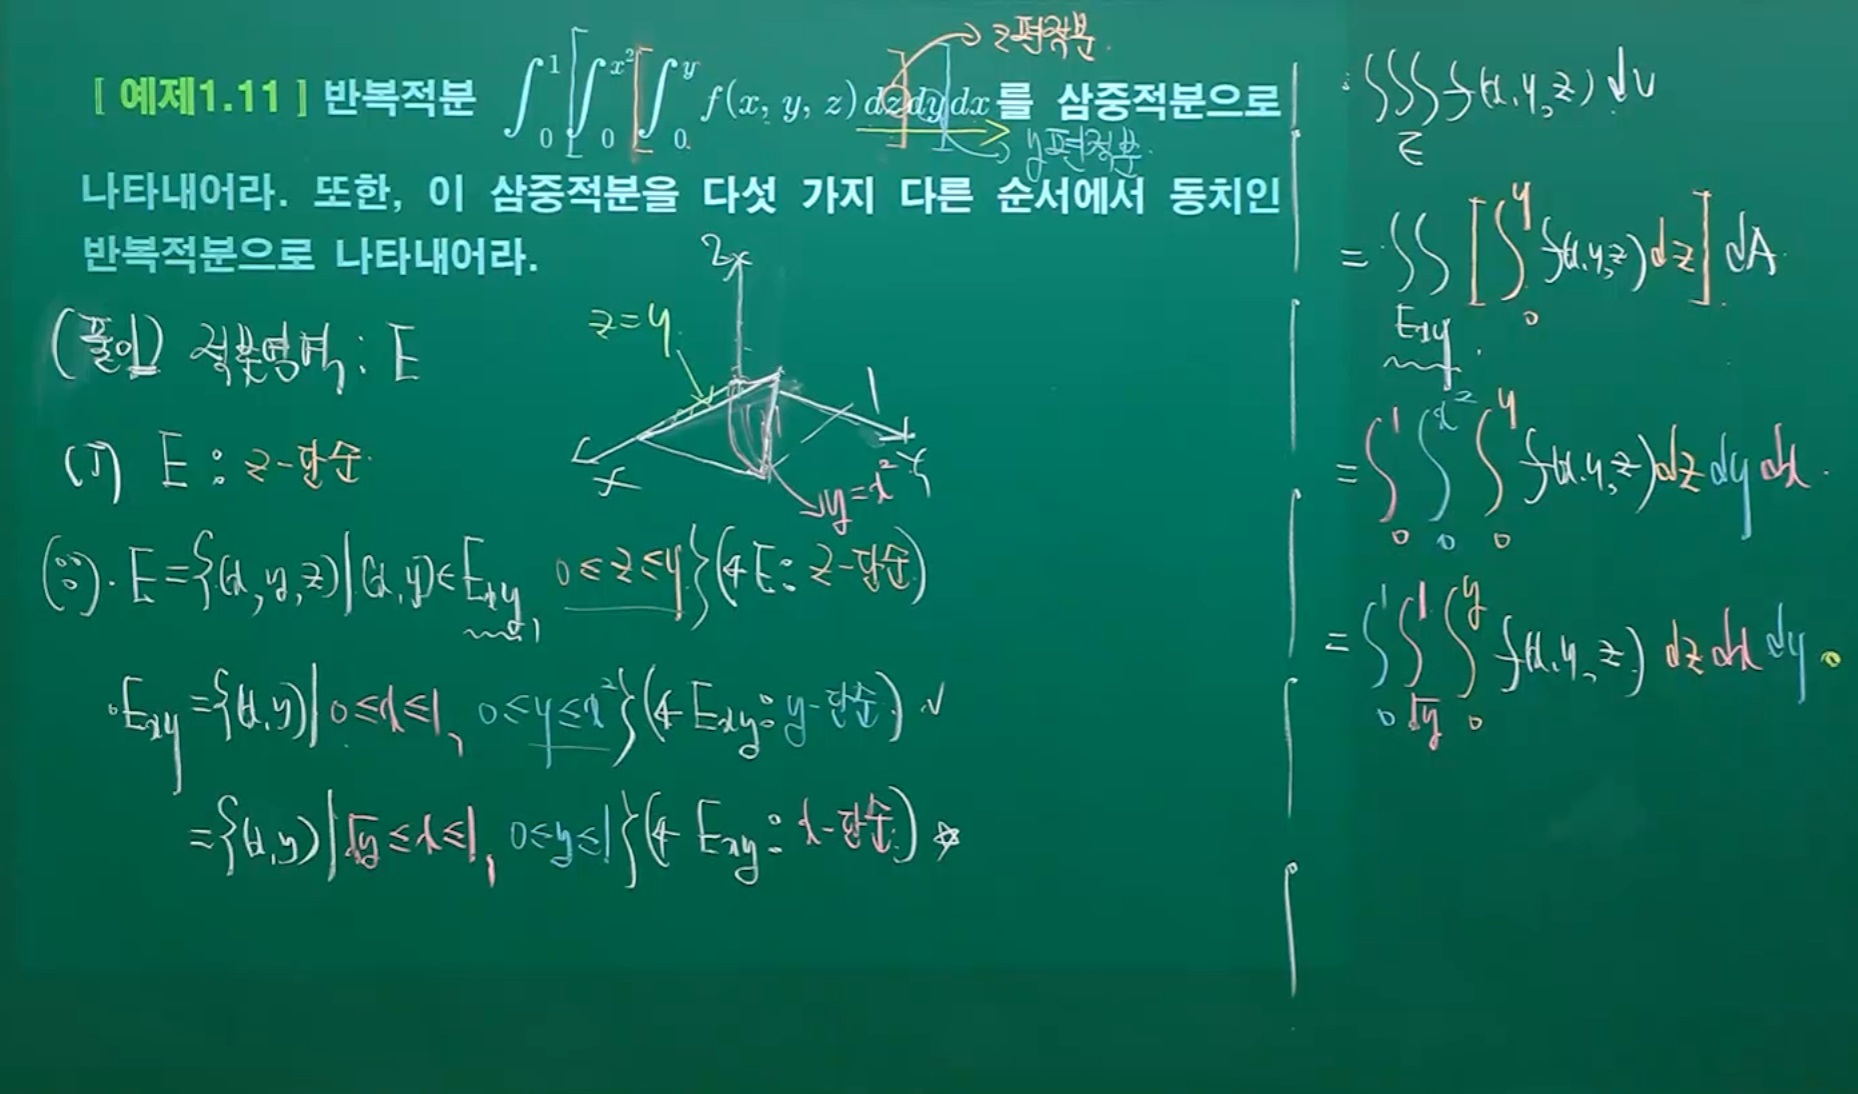 [ 예제1.11 ] 반복적분 ∫₀¹ ∫₀^{x²} ∫₀^y f(x, y, z) dz dy dx 를 삼중적분으로
z편적분.
y편적분.
나타내어라. 또한, 이 삼중적분을 다섯 가지 다른 순서에서 동치인
반복적분으로 나타내어라.
(풀이) 적분영역: E
z
z=y
1
x
y
y=x²
(I) E : z-단순.
(∵). E={(x,y,z)|(x,y)∈E_{xy}, 0≤z≤y}(← E: z-단순)
·E_{xy}={(x,y)|0≤x≤1, 0≤y≤x²}(← E_{xy}: y-단순) ✓
={(x,y)|√y≤x≤1, 0≤y≤1}(← E_{xy}: x-단순) ☆
∭_E f(x,y,z) dV
= ∬_{E_{xy}} [∫₀^y f(x,y,z) dz] dA
= ∫₀¹ ∫₀^{x²} ∫₀^y f(x,y,z) dz dy dx.
= ∫₀¹ ∫_{√y}^1 ∫₀^y f(x,y,z) dz dx dy.